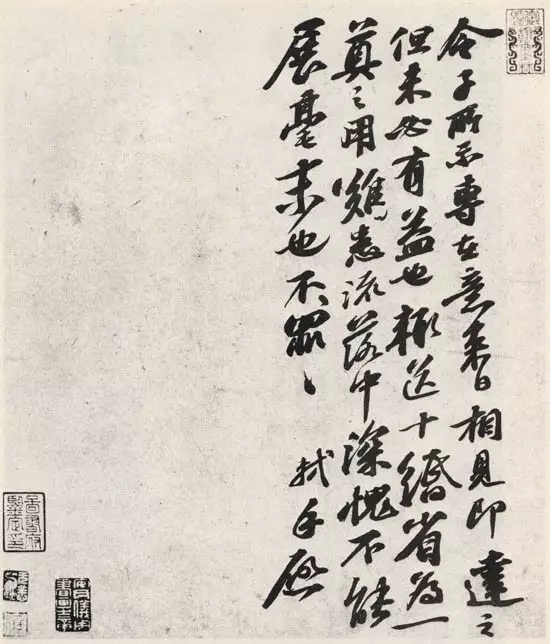 令子所示專在意來日相見即達之
但未必有益也輒送十緡省為一
奠之用難患流落中深愧不能
展毫末也不罪〻 軾手啟